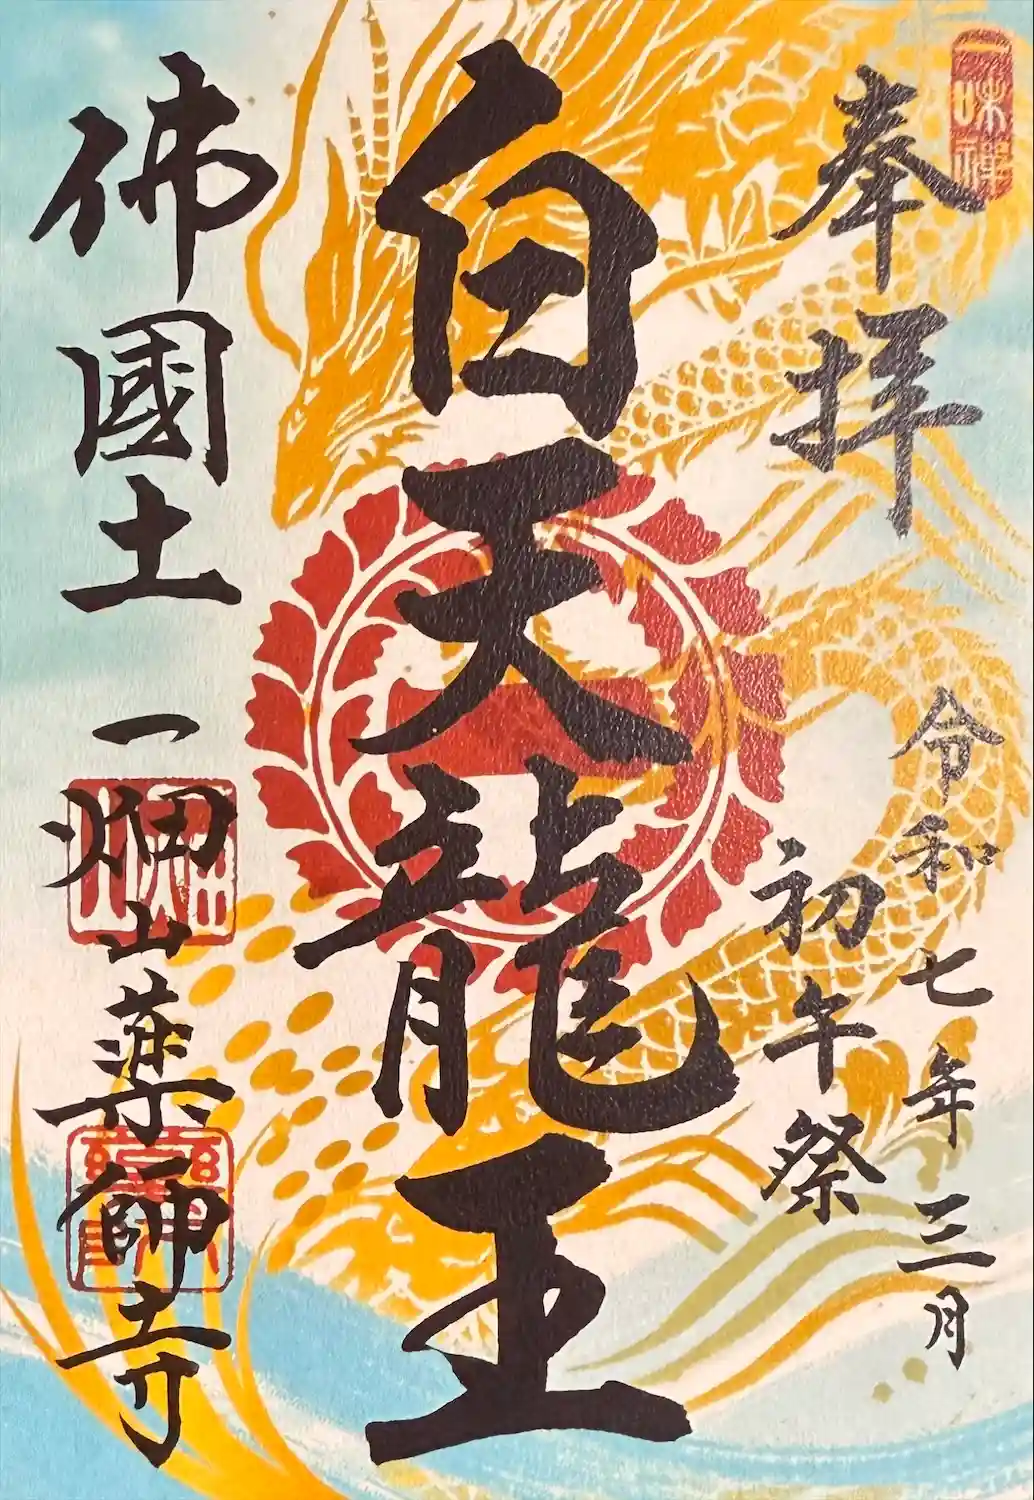 一味禅
奉拝
令和七年三月
初午祭
白天龍王
佛國土
一畑山薬師寺